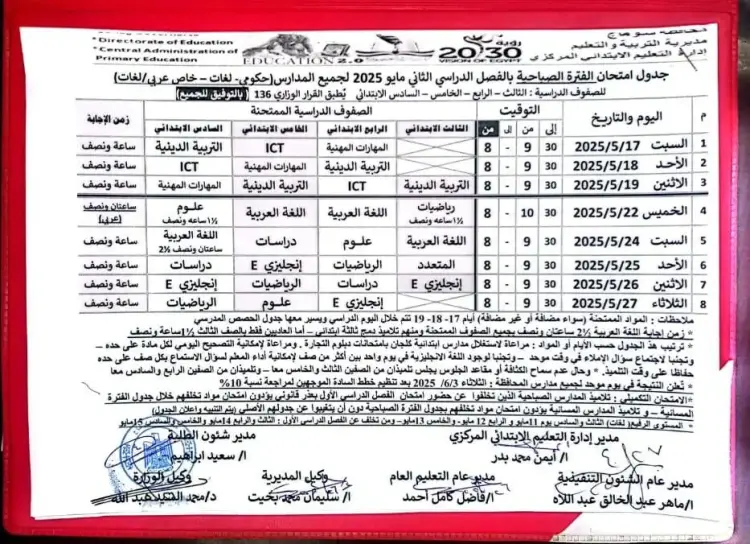 محافظة سوهاج
مديرية التربية والتعليم
إدارة التعليم الابتدائي المركزي
* Directorate of Education
* Central Administration of
Primary Education
EDUCATION 2.0
رؤية مصر
2030
VISION OF EGYPT
جدول امتحان الفترة الصباحية بالفصل الدراسي الثاني مايو 2025 لجميع المدارس(حكومي- لغات – خاص عربي/لغات)
للصفوف الدراسية : الثالث – الرابع – الخامس – السادس الابتدائي يُطبق القرار الوزاري 136 (بالتوفيق للجميع)
م اليوم والتاريخ التوقيت الصفوف الدراسية الممتحنة زمن الإجابة
إلى من إلى من الثالث الابتدائي الرابع الابتدائي الخامس الابتدائي السادس الابتدائي
1 السبت 2025/5/17 30 9 - 8 المهارات المهنية ICT التربية الدينية ساعة ونصف
2 الأحد 2025/5/18 30 9 - 8 التربية الدينية المهارات المهنية ICT ساعة ونصف
3 الاثنين 2025/5/19 30 9 - 8 التربية الدينية ICT التربية الدينية المهارات المهنية ساعة ونصف
4 الخميس 2025/5/22 30 10 - 8 رياضيات ½1 ساعة ونصف اللغة العربية اللغة العربية علوم ½1ساعة ونصف ساعتان ونصف (عربي)
5 السبت 2025/5/24 30 9 - 8 اللغة العربية علوم دراسات اللغة العربية ساعتان ونصف ½2 ساعة ونصف
6 الأحد 2025/5/25 30 9 - 8 المتعدد الرياضيات إنجليزي E دراسات ساعة ونصف
7 الاثنين 2025/5/26 30 9 - 8 إنجليزي E دراسات الرياضيات إنجليزي E ساعة ونصف
8 الثلاثاء 2025/5/27 30 9 - 8 إنجليزي E علوم الرياضيات ساعة ونصف
ملاحظات : المواد الممتحنة (سواء مضافة أو غير مضافة) أيام 17- 18- 19 تتم خلال اليوم الدراسي ويسير معها جدول الحصص المدرسي
* زمن إجابة اللغة العربية ½2 ساعتان ونصف بجميع الصفوف الممتحنة ومنهم تلاميذ دمج ثالثة ابتدائي – أما العاديين فقط بالصف الثالث ½1ساعة ونصف
* ترتيب هذا الجدول حسب الأيام أو المواد : مراعاة لاستغلال مدارس ابتدائية كلجان بامتحانات دبلوم التجارة . ومراعاة لإمكانية التصحيح اليومي لكل مادة على حده –
وتجنبا لاجتماع سؤال الإملاء في وقت موحد – وتجنبا لوجود اللغة الانجليزية في يوم واحد بين أكثر من صف لإمكانية أداء المعلم لسؤال الاستماع بكل صف على حده
حفاظا على وقت التلميذ. * وحال عدم سماح الكثافة أو مقاعد الجلوس يجلس تلميذان من الصفين الثالث والخامس معا – وتلميذان من الصفين الرابع والسادس معا
* تُعلن النتيجة في يوم موحد لجميع مدارس المحافظة : الثلاثاء 6/3/ 2025 بعد تنظيم خطط السادة الموجهين لمراجعة نسبة 10%
*الامتحان التكميلي : تلاميذ المدارس الصباحية الذين تخلفوا عن حضور امتحان الفصل الدراسي الأول بعذر قانوني يؤدون امتحان مواد تخلفهم خلال جدول الفترة
المسائية – و تلاميذ المدارس المسائية يؤدون امتحان مواد تخلفهم بجدول الفترة الصباحية دون أن يتغيبوا عن جدولهم الأصلي (يتم التنبيه وإعلان الجدول)
* المستوى الرفيع( لغات) الثالث والسادس يوم 11مايو و الرابع 12 مايو- والخامس 13مايو– ومن تخلف عن الفصل الدراسي الأول : الثالث والرابع 14مايو والخامس والسادس 15مايو
مدير إدارة التعليم الابتدائي المركزي
أ/ أيمن محمد بدر
مدير شئون الطلبة
أ/ سعيد ابراهيم
مدير عام الشئون التنفيذية
أ/ماهر عبد الخالق عبد اللاه
مدير عام التعليم العام
أ/فاضل كامل احمد
وكيل المديرية
أ/ سليمان محمد بخيت
وكيل الوزارة
د/محمد السيد عبد الله